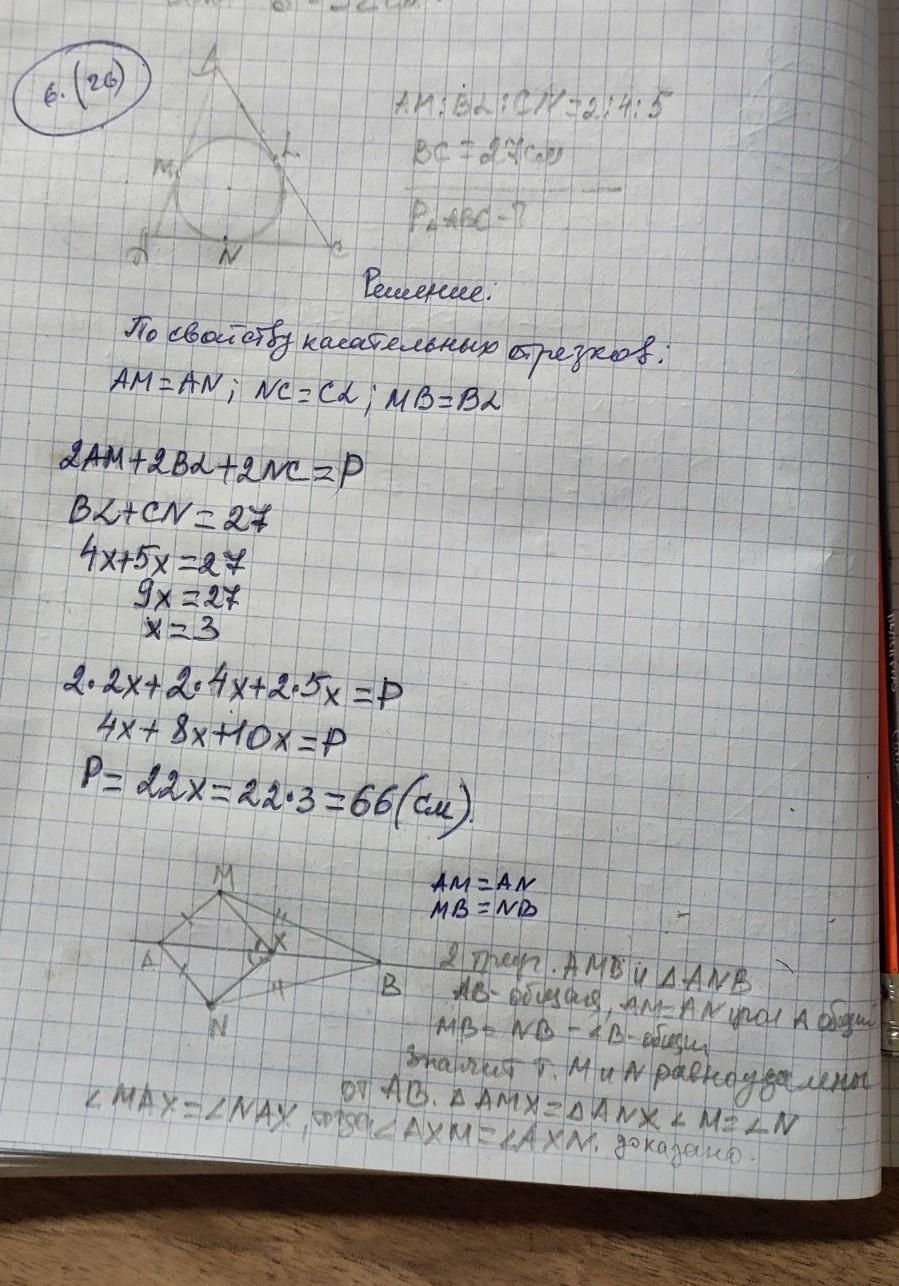 6. (26)
B
AM:BL:CN=2:4:5
M
L
BC = 27см
P△ABC-?
A
N
C
Решение:
По свойству касательных отрезков:
AM=AN; NC=CL; MB=BL
2AM+2BL+2NC=P
BL+CN=27
4x+5x=27
9x=27
x=3
2·2x+2·4x+2·5x=P
4x+8x+10x=P
P=22x=22·3=66(см).
M
AM=AN
MB=NB
A
X
B
N
2 треуг. AMB и △ANB
AB-общая, AM=AN угол A общий
MB=NB-∠B-общий
Значит т. M и N равноудалены
от AB. △AMX=△ANX ∠M=∠N
∠MAX=∠NAX, тогда ∠AXM=∠AXN. доказано.